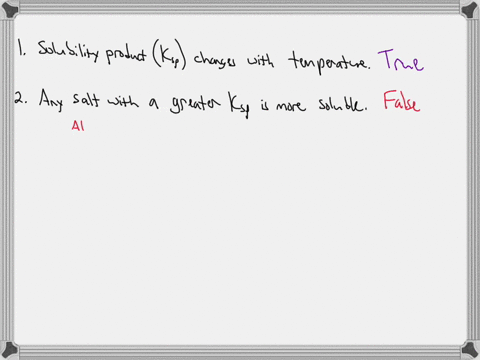 1. Solubility product (Ksp) changes with temperature. True
2. Any salt with a greater Ksp is more soluble. False
Al